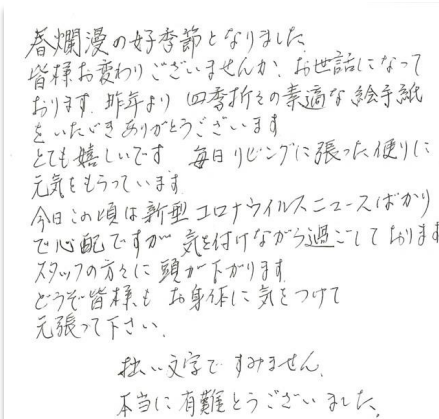 春爛漫の好季節となりました。
皆様お変わりございませんか、お世話になって
おります。昨年より 四季折々の素適な絵手紙
をいただきありがとうございます
とても嬉しいです 毎日リビングに張った便りに
元気をもらっています。
今日この頃は新型コロナウイルスニュースばかり
で心配ですが 気を付けながら過ごしております
スタッフの方々に頭が下がります
どうぞ皆様も お身体に気をつけて
元張って下さい。
拙い文字ですみません。
本当に有難とうございました。